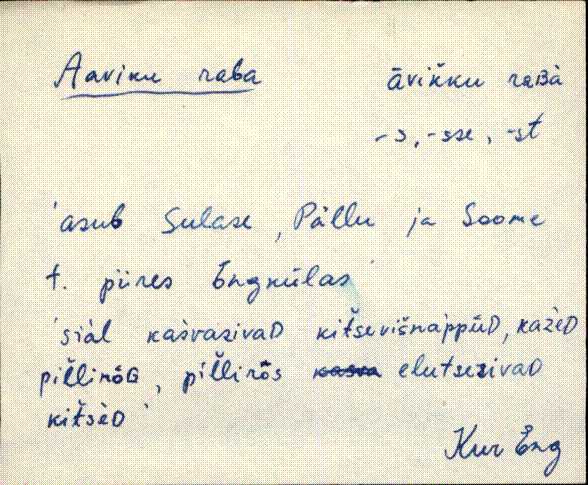 Aaviku raba āvikku raʙà
-s, -sse, -st
'asub Sulase, Pällu ja Soome
t. piires Engkülas'
'siàl kasvasivaᴅ kitševišnàppüᴅ, kažèᴅ
pilliròɢ, pilliròs elutsesivaᴅ
kitsèᴅ'
Kur Eng